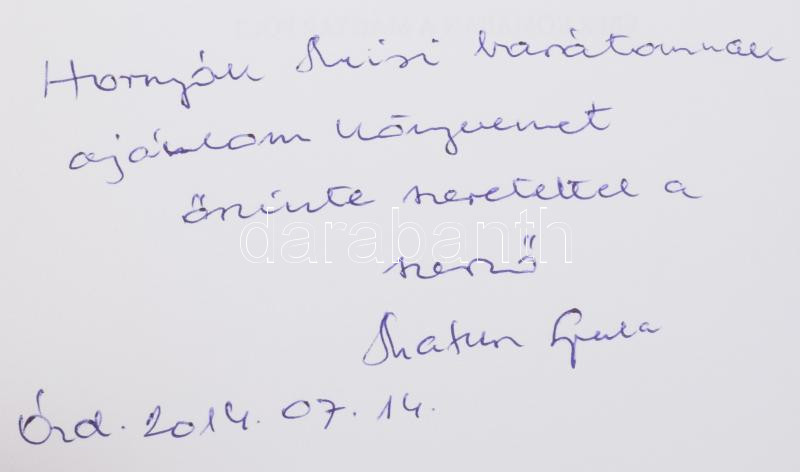 Hornyák Misi barátomnak
ajánlom könyvemet
őszinte szeretettel a
darabanth
szerző
Gyula
Érd. 2014. 07. 14.